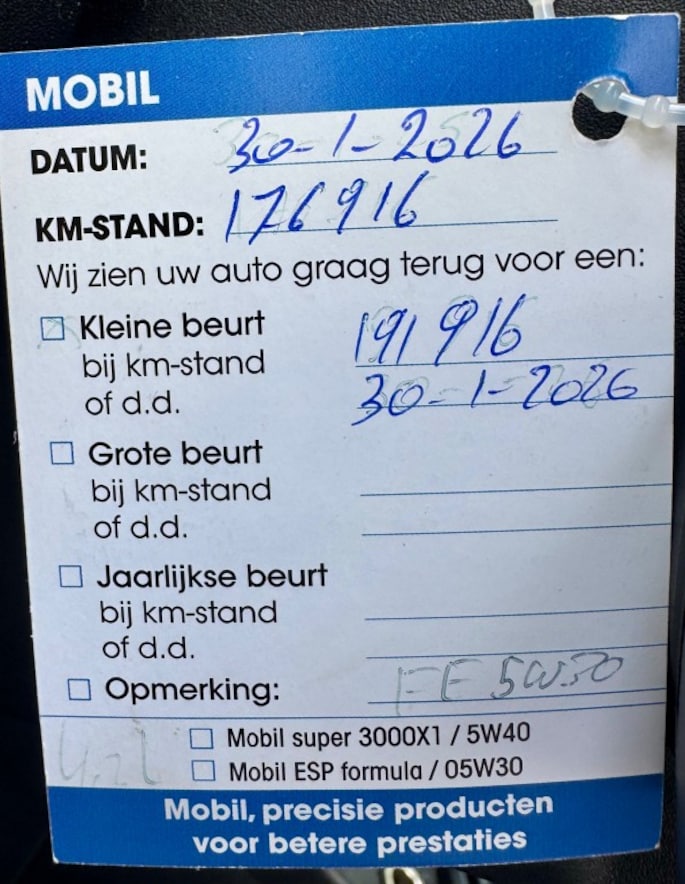 MOBIL
DATUM: 30-1-2026
KM-STAND: 176916
Wij zien uw auto graag terug voor een:
Kleine beurt
bij km-stand 191916
of d.d. 30-1-2026
Grote beurt
bij km-stand
of d.d.
Jaarlijkse beurt
bij km-stand
of d.d.
Opmerking: FE 5W30
Mobil super 3000X1 / 5W40
Mobil ESP formula / 05W30
Mobil, precisie producten
voor betere prestaties